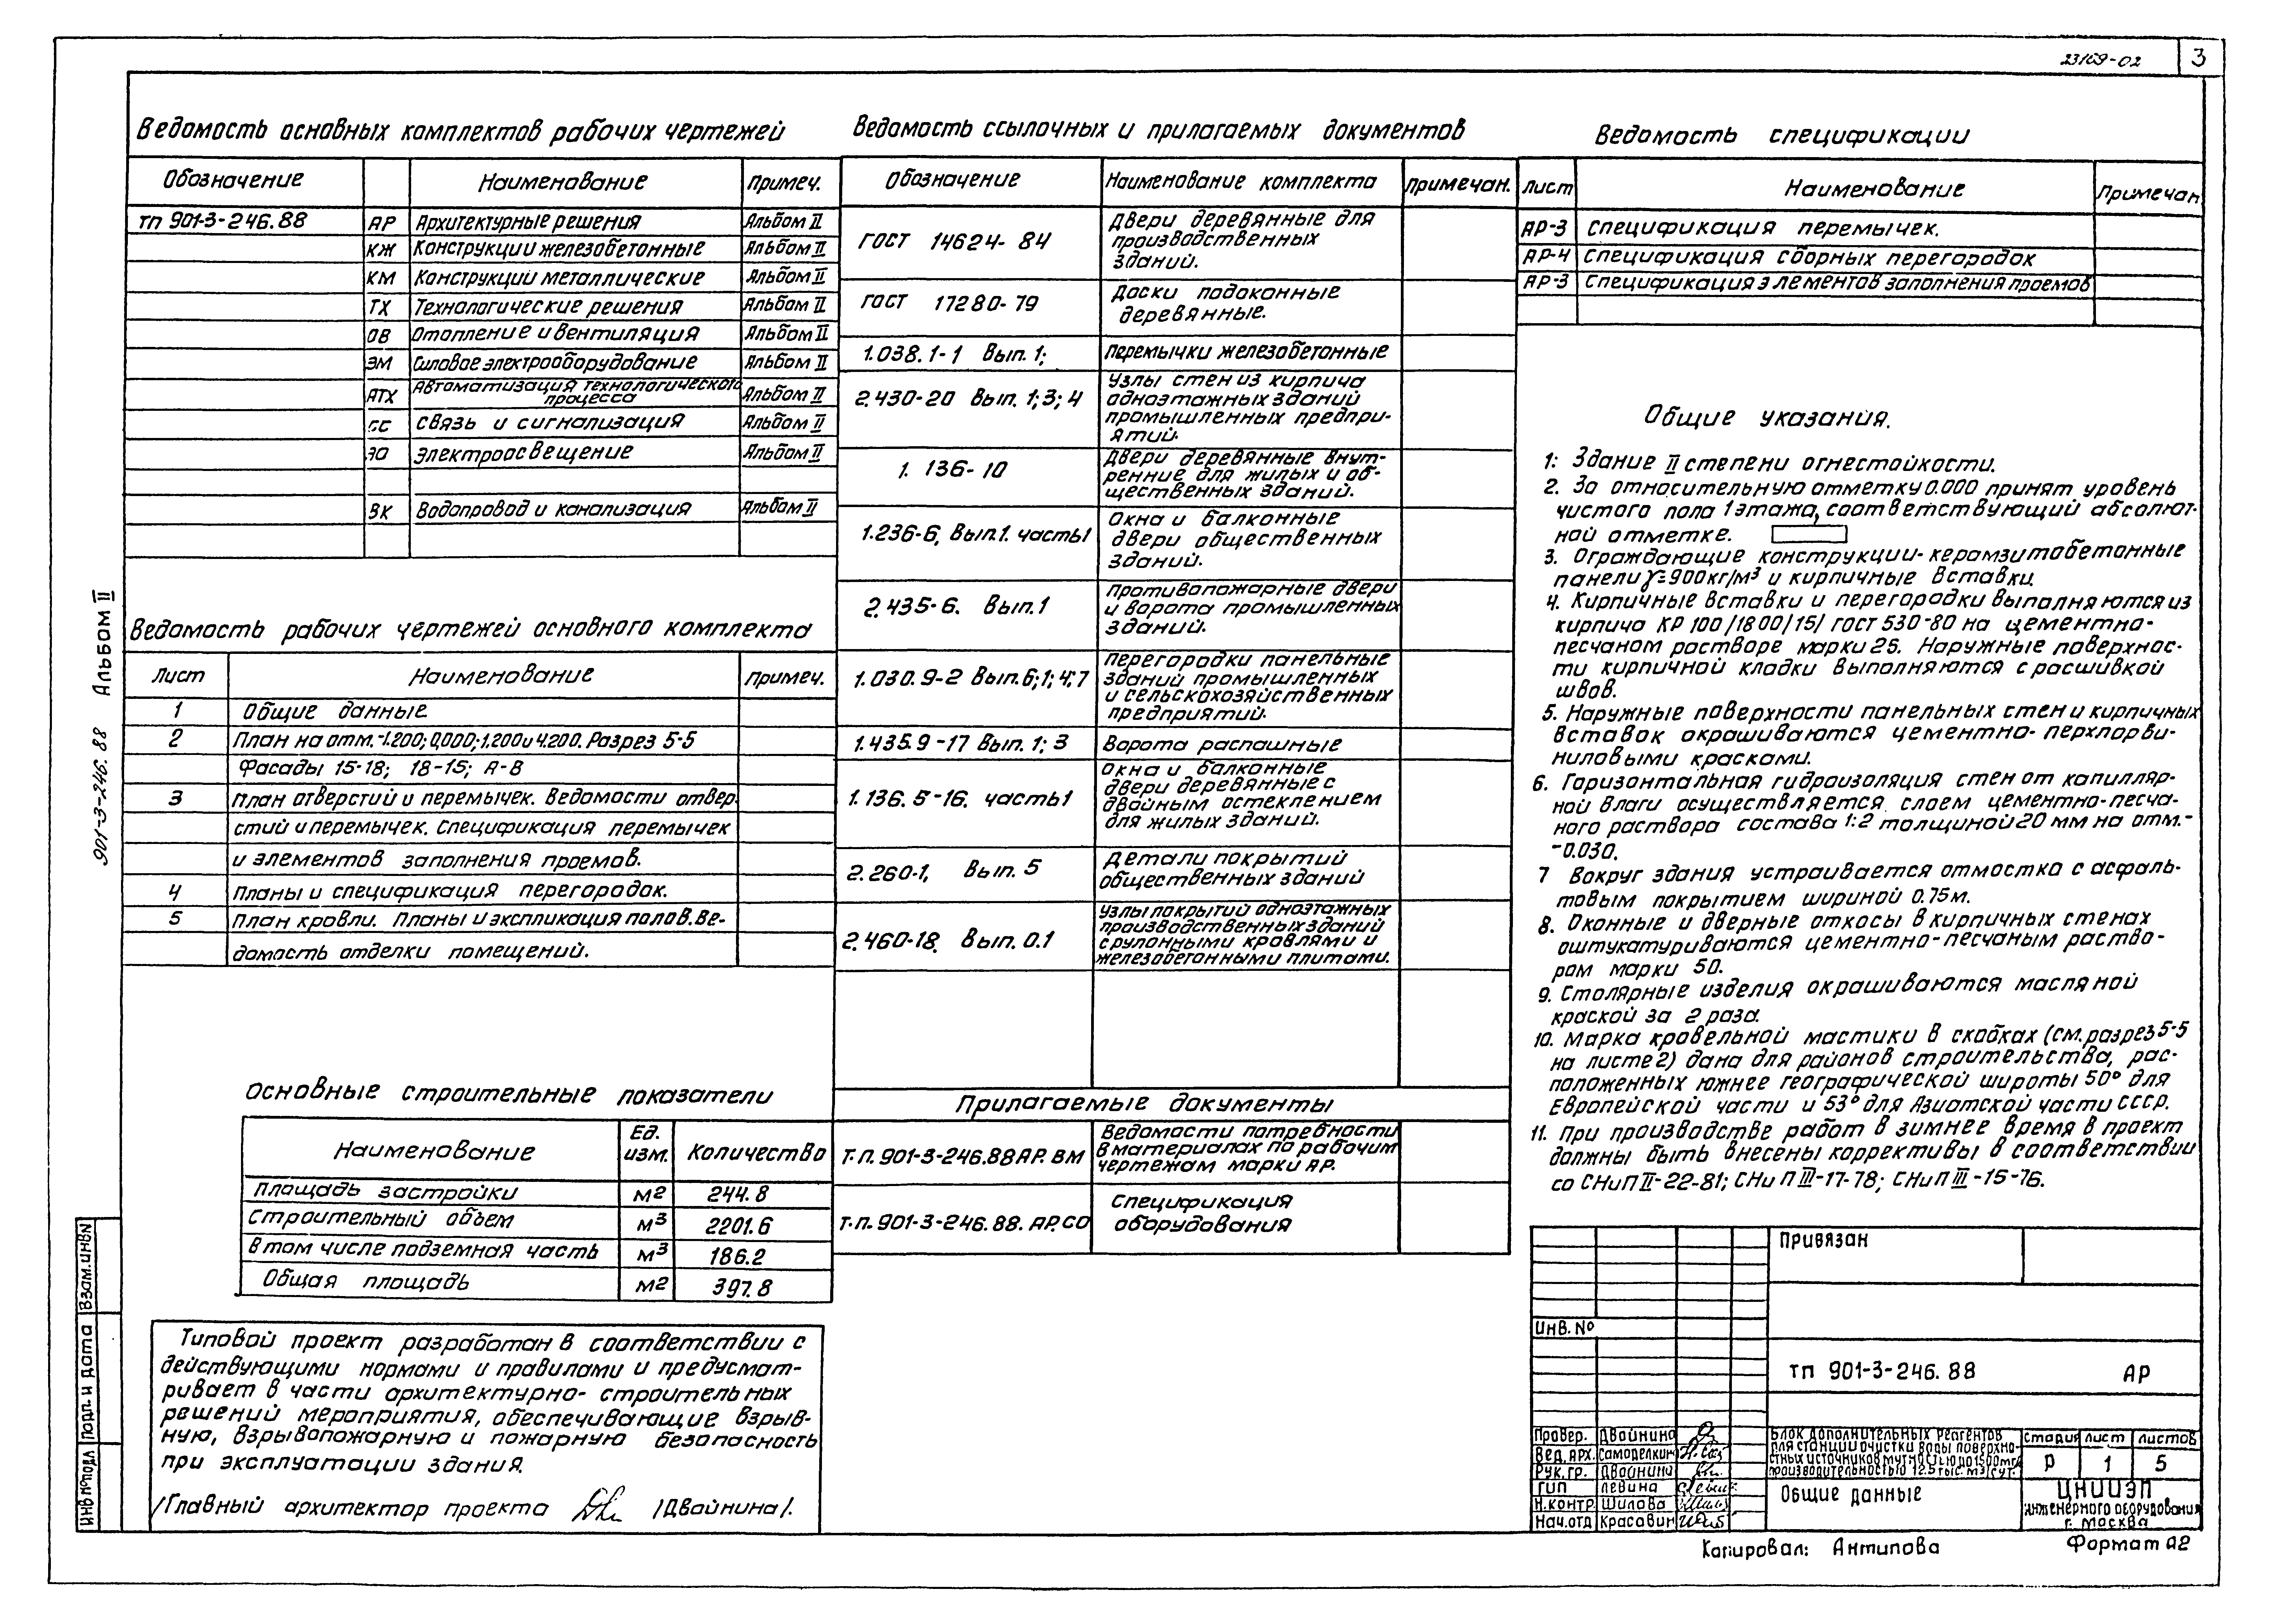 23169-02
3
Ведомость основных комплектов рабочих чертежей
Обозначение Наименование Примеч.
ТП 901-3-246.88 АР Архитектурные решения Альбом II
КЖ Конструкции железобетонные Альбом II
КМ Конструкции металлические Альбом II
ТХ Технологические решения Альбом II
ОВ Отопление и вентиляция Альбом II
ЭМ Силовое электрооборудование Альбом II
АТХ Автоматизация технологического процесса Альбом II
СС Связь и сигнализация Альбом II
ЭО Электроосвещение Альбом II
ВК Водопровод и канализация Альбом II
Ведомость рабочих чертежей основного комплекта
Лист Наименование Примеч.
1 Общие данные
2 План на отм. -1.200; 0,000; 1.200 и 4.200. Разрез 5-5
Фасады 15-18; 18-15; А-В
3 План отверстий и перемычек. Ведомости отвер-
стий и перемычек. Спецификация перемычек
и элементов заполнения проемов.
4 Планы и спецификация перегородок.
5 План кровли. Планы и экспликация полов. Ве-
домость отделки помещений.
Основные строительные показатели
Наименование Ед. изм. Количество
Площадь застройки м2 244.8
Строительный объем м3 2201.6
В том числе подземная часть м3 186.2
Общая площадь м2 397.8
Типовой проект разработан в соответствии с
действующими нормами и правилами и предусмат-
ривает в части архитектурно-строительных
решений мероприятия, обеспечивающие взрыв-
ную, взрывопожарную и пожарную безопасность
при эксплуатации здания.
/Главный архитектор проекта /Двойнина/.
Ведомость ссылочных и прилагаемых документов
Обозначение Наименование комплекта Примечан.
ГОСТ 14624-84 Двери деревянные для
производственных
зданий.
ГОСТ 17280-79 Доски подоконные
деревянные.
1.038.1-1 Вып. 1; Перемычки железобетонные
2.430-20 Вып. 1; 3; 4 Узлы стен из кирпича
одноэтажных зданий
промышленных предпри-
ятий.
1. 136-10 Двери деревянные внут-
ренние для жилых и об-
щественных зданий.
1.236-6, Вып.1. часть 1 Окна и балконные
двери общественных
зданий.
2.435-6. Вып.1 Противопожарные двери
и ворота промышленных
зданий.
1.030.9-2 Вып.6;1;4;7 Перегородки панельные
зданий промышленных
и сельскохозяйственных
предприятий.
1.435.9-17 Вып. 1; 3 Ворота распашные
1.136.5-16. часть 1 Окна и балконные
двери деревянные с
двойным остеклением
для жилых зданий.
2.260-1, Вып. 5 Детали покрытий
общественных зданий
2.460-18. Вып. 0.1 Узлы покрытий одноэтажных
производственных зданий
с рулонными кровлями и
железобетонными плитами.
Прилагаемые документы
Т.п. 901-3-246.88 АР. ВМ Ведомости потребности
в материалах по рабочим
чертежам марки АР.
Т.п. 901-3-246.88. АР.СО Спецификация
оборудования
Ведомость спецификации
Лист Наименование Примечан.
АР-3 Спецификация перемычек.
АР-4 Спецификация сборных перегородок
АР-3 Спецификация элементов заполнения проемов
Общие указания.
1: Здание II степени огнестойкости.
2. За относительную отметку 0.000 принят уровень
чистого пола 1 этажа, соответствующий абсолют-
ной отметке.
3. Ограждающие конструкции-керамзитобетонные
панели γ=900кг/м³ и кирпичные вставки.
4. Кирпичные вставки и перегородки выполняются из
кирпича КР 100/1800/15/ ГОСТ 530-80 на цементно-
песчаном растворе марки 25. Наружные поверхнос-
ти кирпичной кладки выполняются с расшивкой
швов.
5. Наружные поверхности панельных стен и кирпичных
вставок окрашиваются цементно-перхлорви-
ниловыми красками.
6. Горизонтальная гидроизоляция стен от капилляр-
ной влаги осуществляется слоем цементно-песча-
ного раствора состава 1:2 толщиной 20 мм на отм.-
-0.030.
7 Вокруг здания устраивается отмостка с асфаль-
товым покрытием шириной 0.75м.
8. Оконные и дверные откосы в кирпичных стенах
оштукатуриваются цементно-песчаным раство-
ром марки 50.
9. Столярные изделия окрашиваются масляной
краской за 2 раза.
10. Марка кровельной мастики в скобках (см. разрез 5-5
на листе 2) дана для районов строительства, рас-
положенных южнее географической широты 50° для
Европейской части и 53° для Азиатской части СССР.
11. При производстве работ в зимнее время в проект
должны быть внесены коррективы в соответствии
со СНиП II-22-81; СНиП III-17-78; СНиП III-15-76.
Привязан
Инв. №
ТП 901-3-246.88 АР
Провер. Двойнина
Вед. арх. Самоделкин
Рук. гр. Двойнина
ГИП Левина
Н.контр Шилова
Нач.отд Красавин
Блок дополнительных реагентов
для станции очистки воды поверхно-
стных источников мутностью до 1500мг/л
производительностью 12.5 тыс. м3/сут.
Стадия Лист Листов
Р 1 5
Общие данные
ЦНИИЭП
инженерного оборудования
г. Москва
Копировал: Антипова Формат А2
901-3-246.88 Альбом II
Инв № подл Подп. и дата Взам. инв N